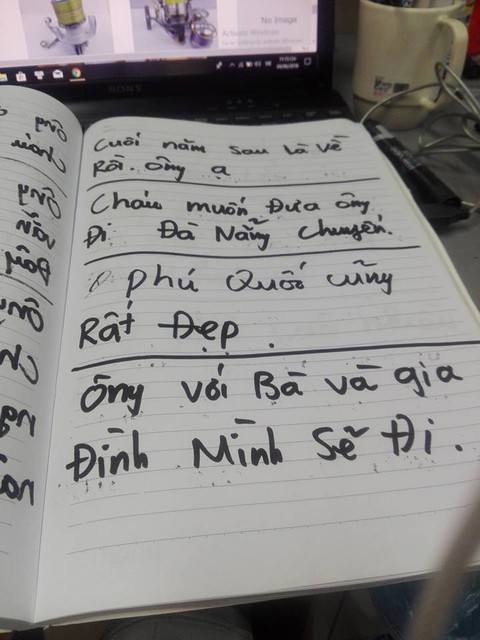 No Image
Activate Windows
SONY
Cuối năm sau là về
Rồi. ông ạ
Cháu muốn Đưa ông
Đi Đà Nẵng chuyến.
phú Quối cũng
Rất Đẹp.
ông với Bà và gia
Đình Mình Sẽ Đi.